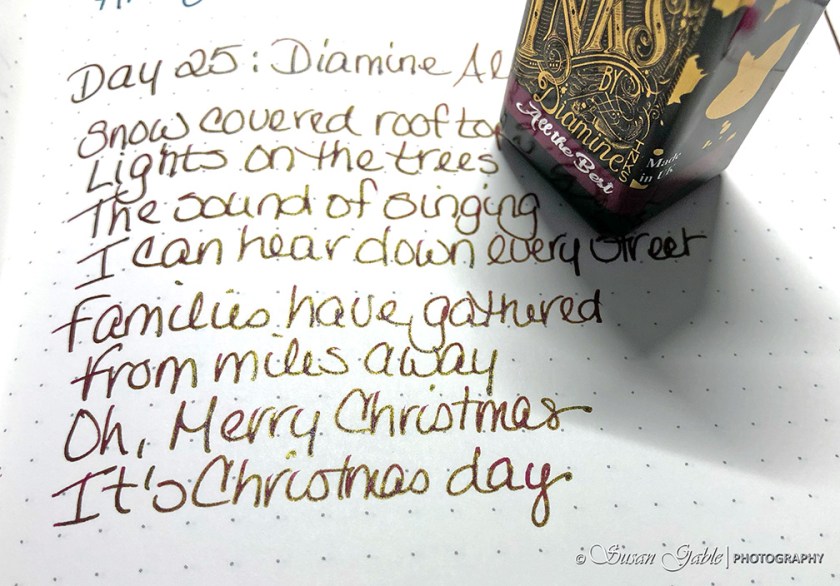 Day 25: Diamine Al
Snow covered roofto
Lights on the trees
The sound of singing
I can hear down every street
Families have gathered
from miles away
Oh, Merry Christmas
It's Christmas day
INKS
BY
Diamine
INKS
All the Best
Made
in UK
© Susan Gable | PHOTOGRAPHY